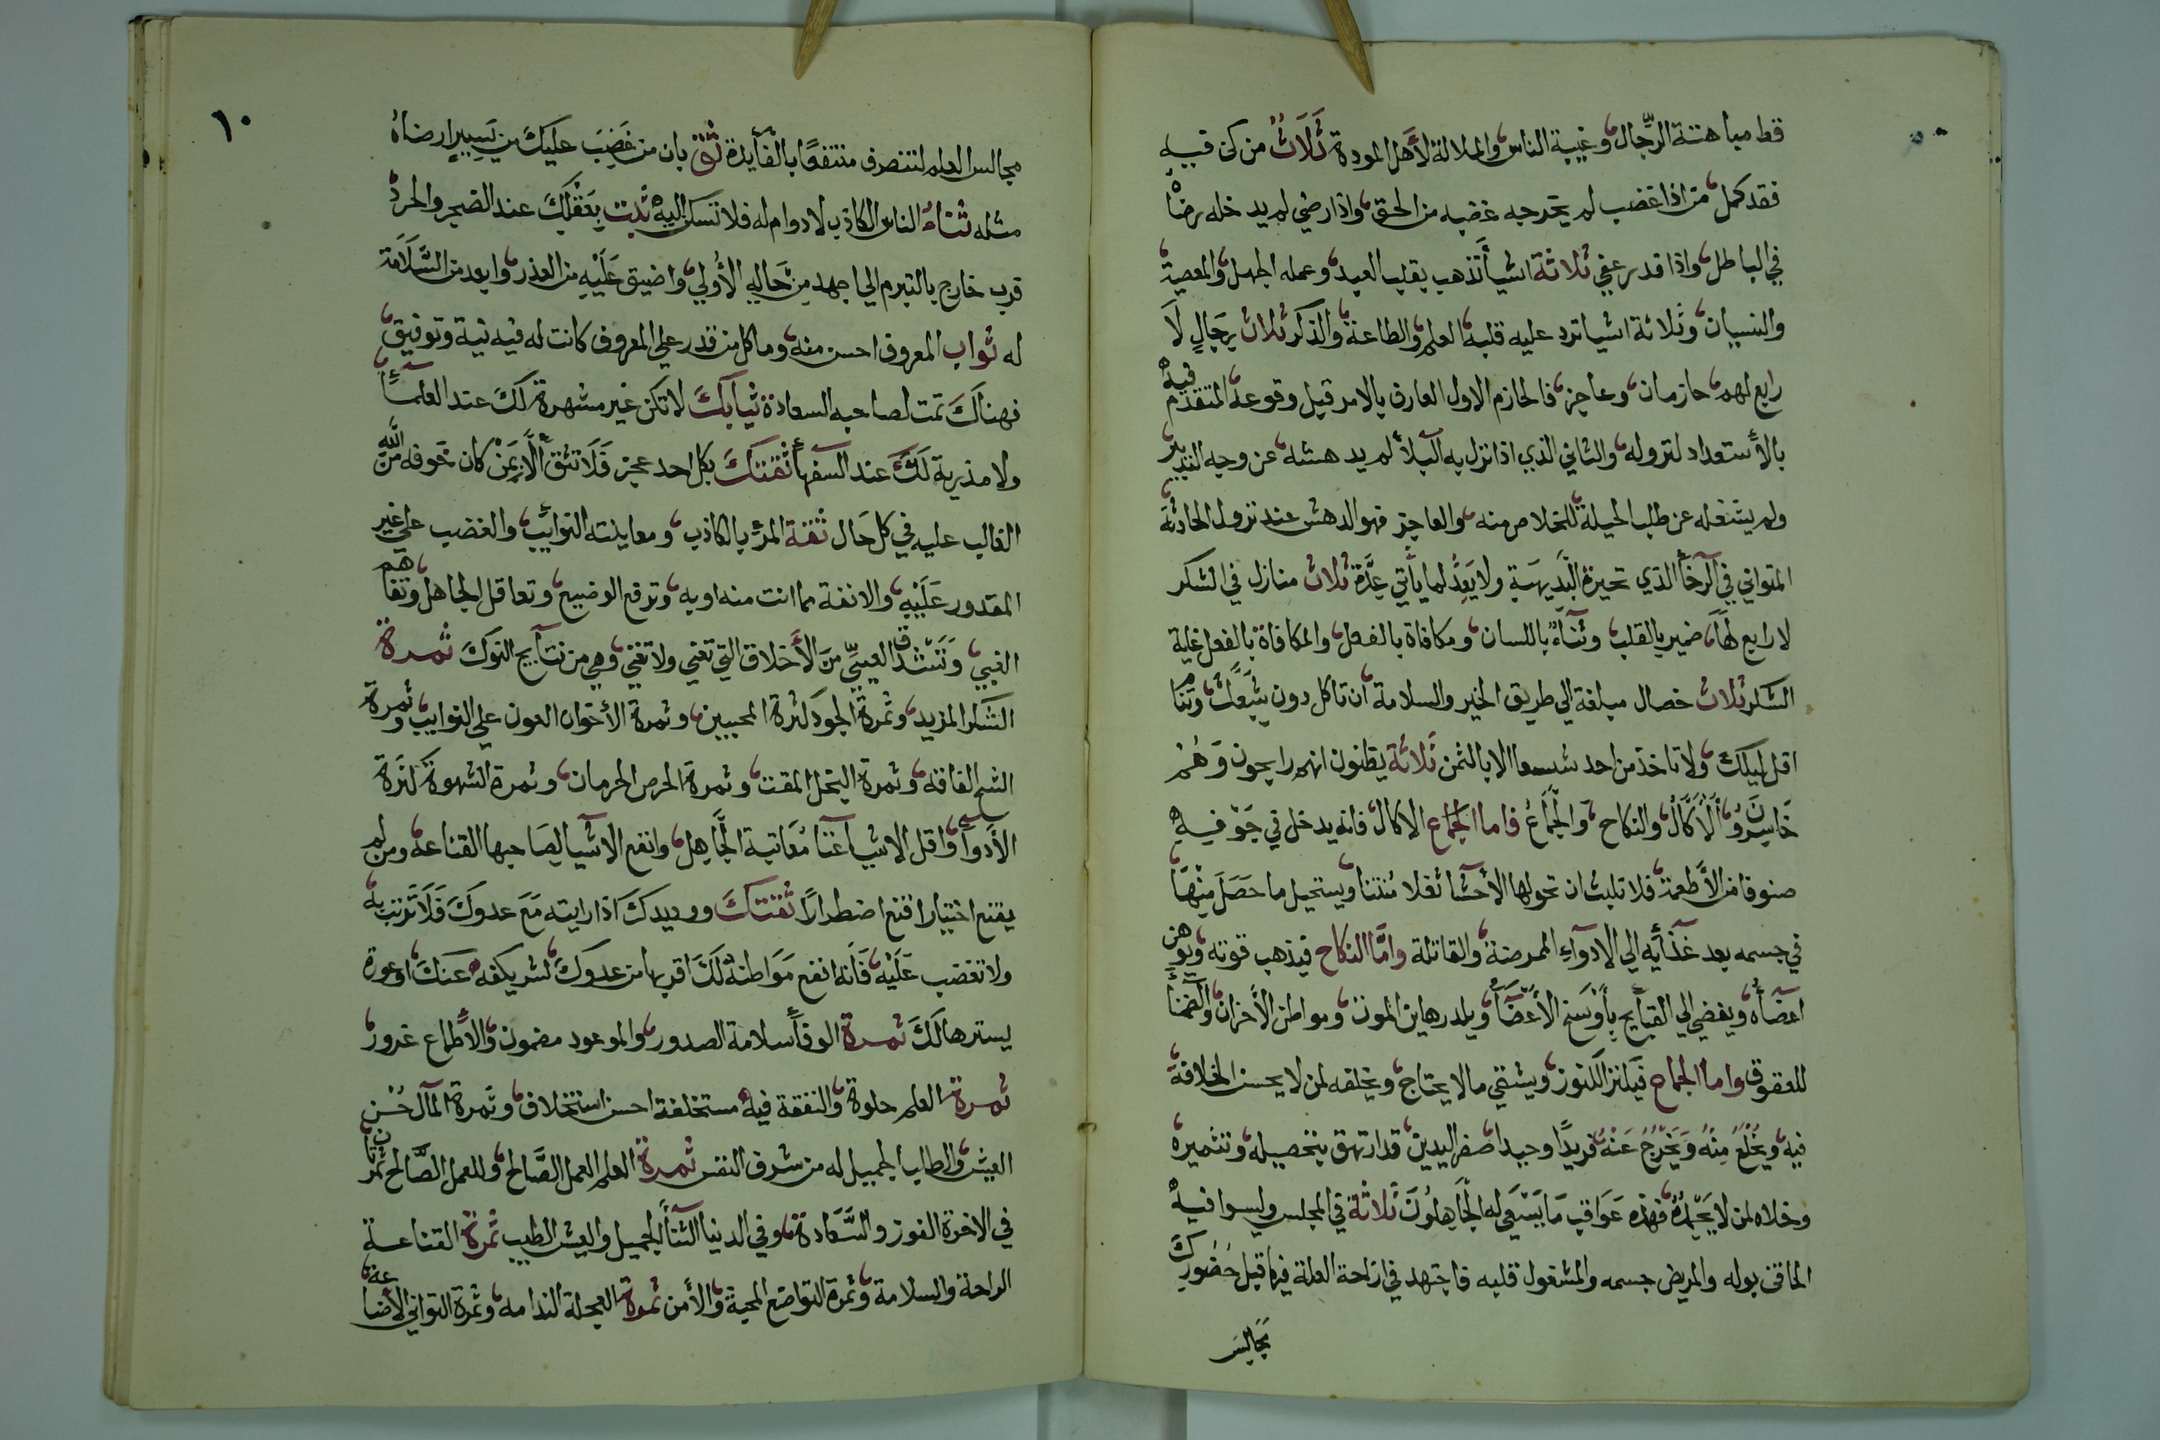 قط مباهتة الرّجال وغيبة الناس والملالة لأهل المودة ثَلَاثُ من كن فيه
فقد كمل من اذا غضب لم يخرجه غضبه من الحق واذا رضي لم يدخله رضاه
في الباطل واذا قدر عفي ثلاثة اشيأ تذهب بقلب العبد وعمله الجهل والمعصية
والنسيان وثلاثة اشيا ترد عليه قلبه العلم والطاعة والذكر ثلاث رجالٍ لَا
رابع لهم حازمان وعاجز فالحازم الاول العارف بالامر قبل وقوعه المتقدم فيه
بالأستعداد لنزوله والثاني الذي اذا نزل به البلأ لم يدهشه عن وجه التدبير
ولم يشغله عن طلب الحيلة للخلاص منه والعاجز فهو الدهش عند نزول الحادثة
المتواني في الرخأ الذي تحيره البَديهَة ولا يَعِدُّ لما يأتي عِدَّة ثلاث منازل في الشكر
لا رابع لها ضمير بالقلب وثنآءٌ باللسان ومكافاة بالفعل والمكافاة بالفعل غاية
الشكر ثلاث خصال مبلغة الي طريق الخير والسلامة ان تاكل دون شبعك وتنام
اقل ليلك ولا تاخذ من احد شسعا الا بالثمن ثَلاثة يظنون انهم رابحون وَهُمْ
خَاسِرُونَ الأكَّالُ والنكاح وَالجمَّاعُ فاما الجماع الاكال فانه يدخل في جَوْفِهِ
صنوفا من الأَطعمة فلا تلبث ان تحولها الأحشا ثفلا مُنتنا ويستحيل ما حَصَلَ مِنْهَا
في جسمه بعد غذآيه الي الادوآءِ الممرضة والقاتلة وامَّا النكاح فيذهب قوته ويوهن
اعضاه ويفضي الي القبايح بِأوْسَخِ الأَعْضَآءِ ويلد رهاين المؤن ومواطن الأَحزان والضمنأ
للعقوق واما الجماع فيكنز الكنوز ويشقي مالا يحتاج ويخلفه لمن لا يحسن الخلافة
فيه ويُخْلَعُ مِنْهُ وَيَخْرُجُ عَنْهُ فريدًا وحيدا صفر اليدين قد ارتهق بتحصيله وتثميره
وخلاه لمن لا يَحْمَدُهُ فهذه عَوَاقِب مَا يَسْعَي له الجَاهِلُونَ ثلاثة في المجلس وليسوا فيه
الحاقن بوله والمريض جسمه والمشغول قلبه فاجتهد في ازاحة العلة فيها قبل حُضُورِكَ
مَجَالِسَ
١٠
مجالس العلم لتنصرف منتفعًا بالفأيدة ثِقْ بان من غَضِبَ عليكَ من يَسِيرٍ ارضاهُ
مثله ثناءُ الناس الكاذب لا دوام له فلا تسكن اليه ثبت بِعَقْلِكَ عند الضجر والحرد
فرب خارج بالتبرم الي اجهد مِن حَالِهِ الأُولي واضيق عَلَيْهِ من العذر وابعد من السَّلَامَة
له ثواب المعروف احسن منه وما كل من قدر علي المعروف كانت له فيه نية وتوفيق
فهناكَ تمت لصاحبه السعادة ثيابكَ لا تكن غير مشهرة لكَ عند العلمآءِ
ولا مذرية لَكَ عند السفهآ ثقتكَ بكل احد عجز فَلَا تثق الَّا بِمَنْ كان خوفه من الله
الغالب عليه في كل حَال ثقة المرء بالكاذب ومعاينته النوايب والغضب علي غير
المقدور عَلَيْهِ والانفة مما انت منه اوبه وترفع الوضيع وتعاقل الجاهل وتفاهم
الغبي وتَشَدُّق العييّ مِنَ الأَخلاق التي تعني ولا تغني وهي من نتآيج النوكَ ثمرة
الشكر المزيد وثمرة الجود كثرة المحبين وثمرة الأخوان العون علي النوايب وثمرة
الشح الفاقة وثمرة البخل المقت وثمرة الحرص الحرمان وثمرة الشهوة كثرة
الأَدوآءِ واقل الاشيآ غنا مُعَاتبة الجَّاهِل وانفع الاشيا لِصَاحبها القناعة ومن لم
يقنع اختيارا قنع اضطرارًا ثقتكَ ووديدكَ اذا رايته مَعَ عدوكَ فَلَا ترتب به
ولا تغضب عَلَيْهِ فَانه انفع مَوَاطنه لَكَ اقربها من عدوكَ لشر يكفه عَنكَ او عورة
يسترها لَكَ ثمرة الوفأ سلامة الصدور والموعود مضمون والأطماع غرور
ثمرة العلم حلوة والنفقة فيه مستخلفة احسن استخلاف وثمرة المآل حُسْن
العيش والطالب الجميل له من شرف النفس ثمرة العلم العمل الصَّالح وللعمل الصَّالح ثمرتان
في الاخرة الفوز والسَّعَادة وفي الدنيا الثنآءُ الجميل والعيش الطيب ثمرة القناعة
الراحة والسلامة وثمرة التواضع المحبة والأمن ثمرة العجلة الندامه وثمرة التواني الأضاعة